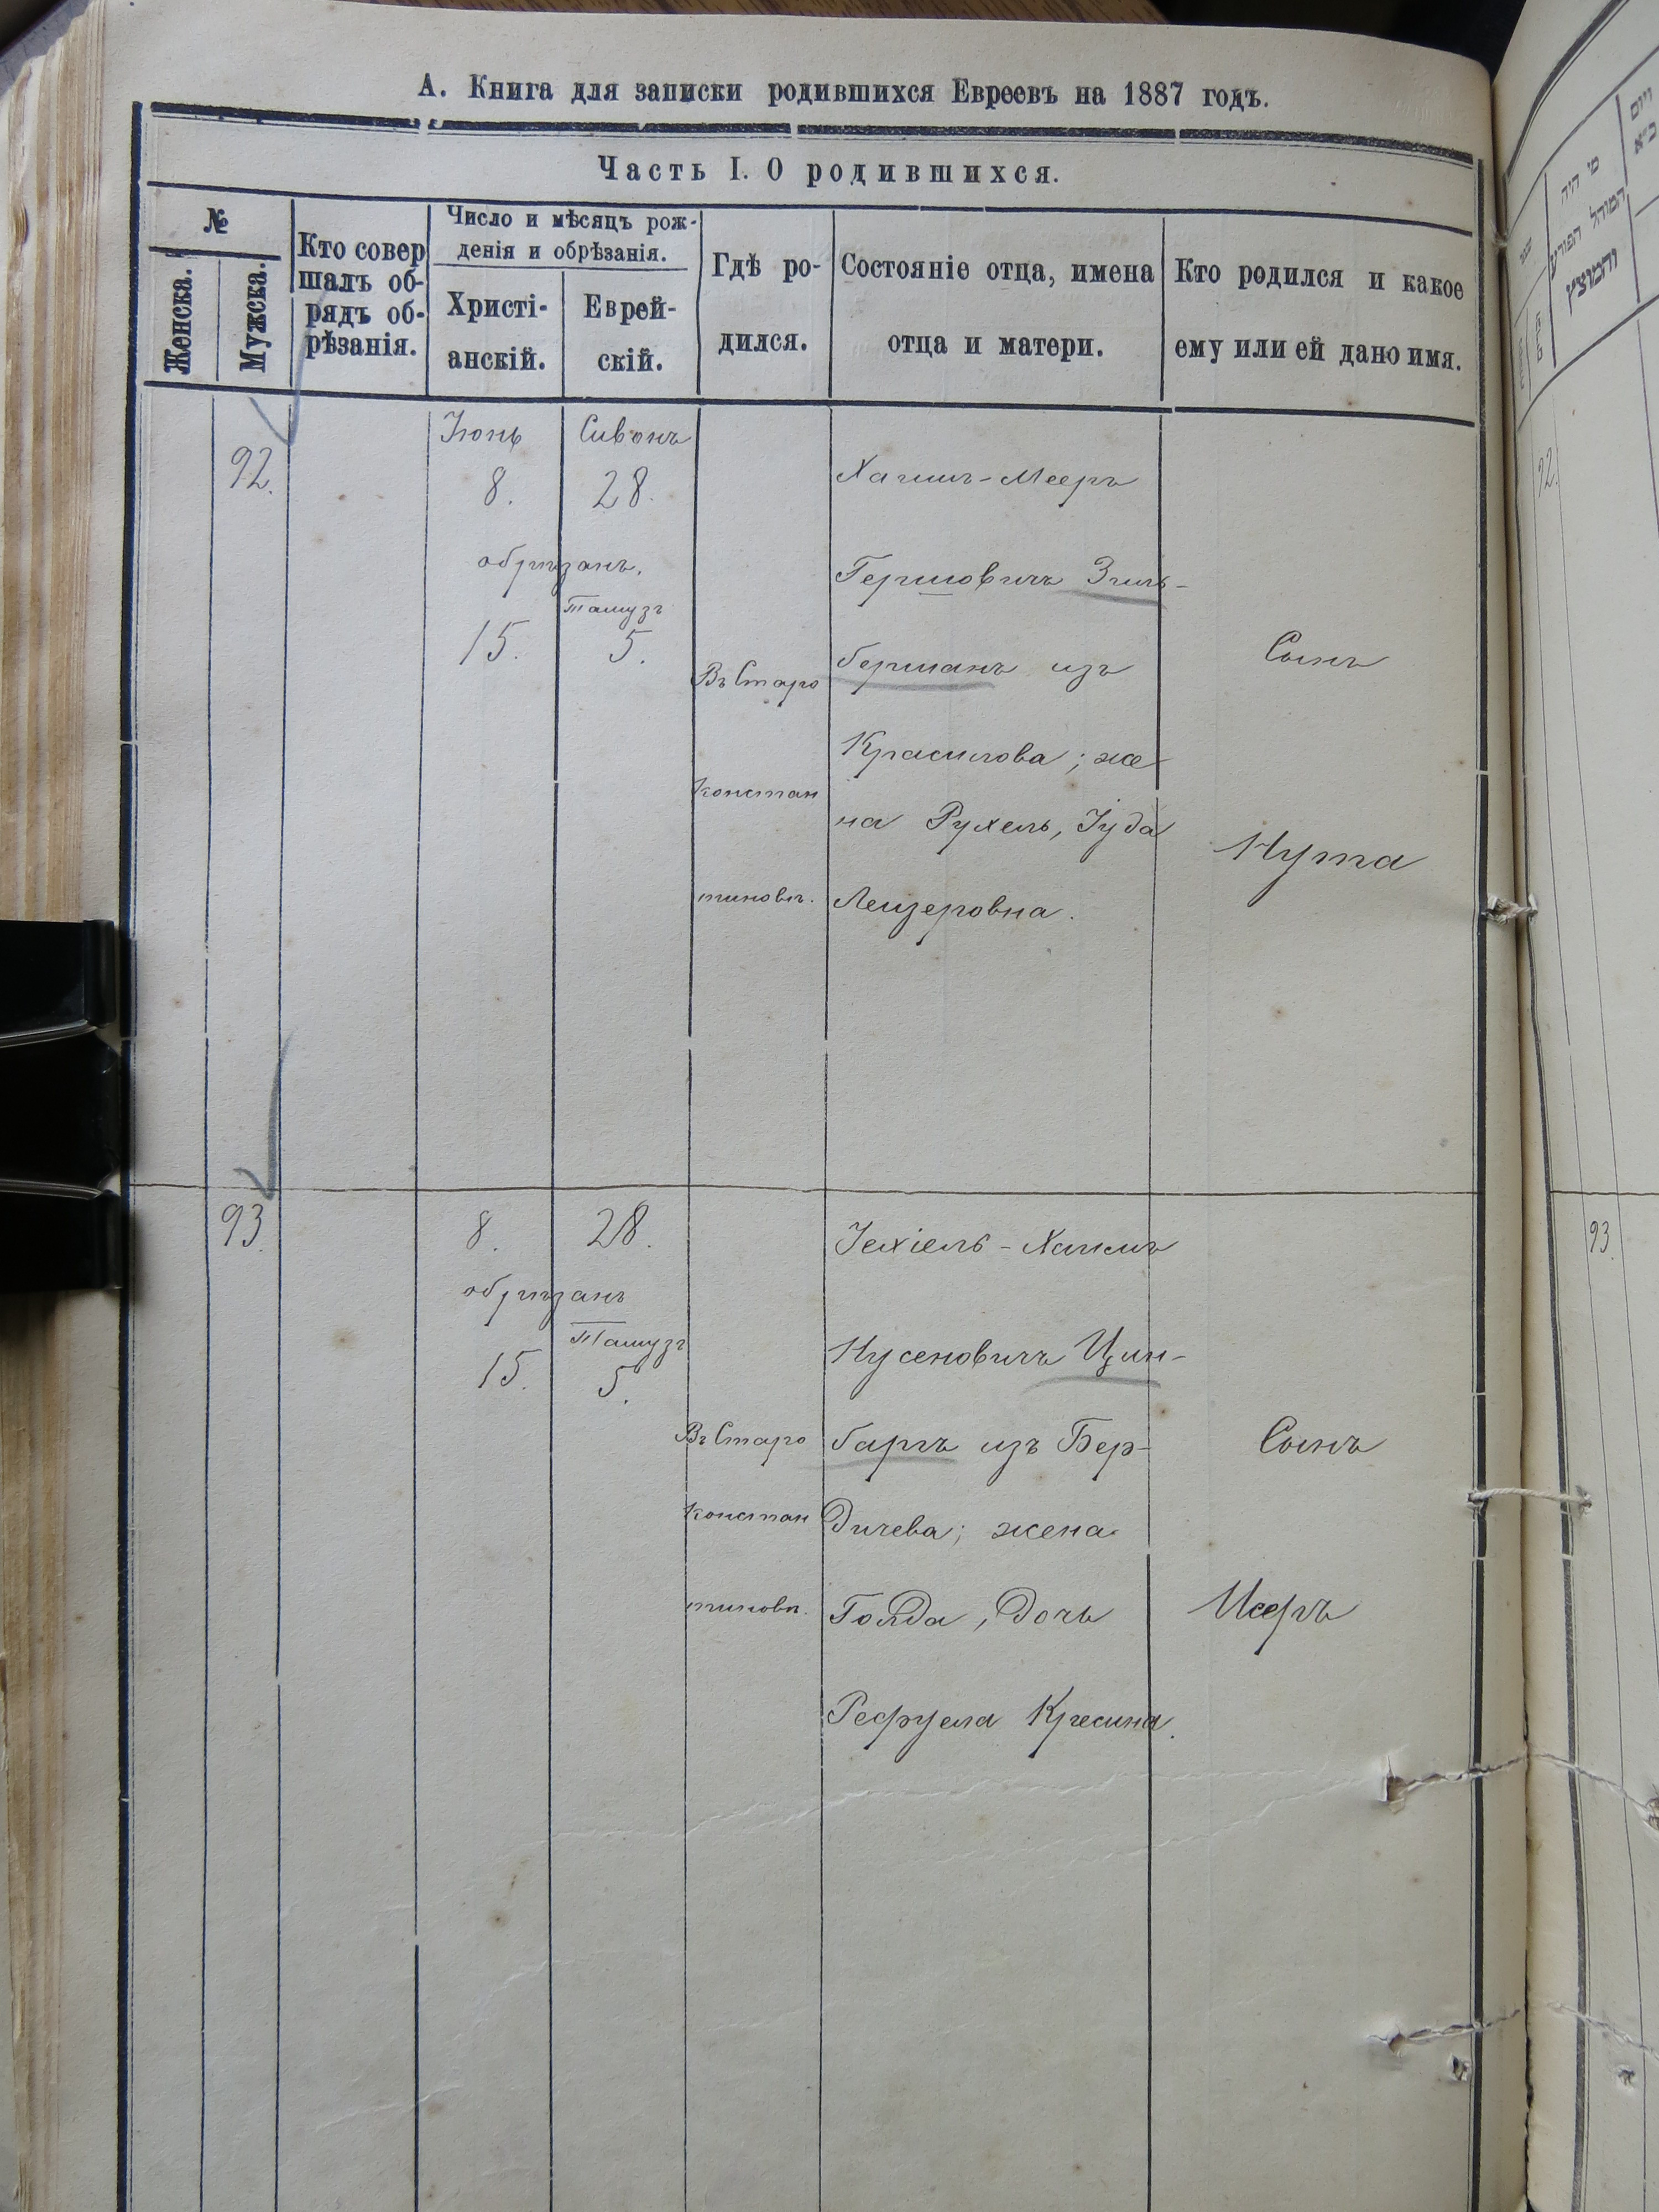 А. Книга для записки родившихся Евреевъ на 1887 годъ.
Часть I. О родившихся.
№
Женска.
Мужска.
Кто совер
шалъ об-
рядъ об-
рѣзанія.
Число и мѣсяцъ рож-
денія и обрѣзанія.
Христі-
анскій.
Еврей-
скій.
Гдѣ ро-
дился.
Состояніе отца, имена
отца и матери.
Кто родился и какое
ему или ей дано имя.
92.
Іюнь
8.
Сивонъ
28.
обрѣзанъ.
15.
Тамузъ
5.
Въ Старо
констан
тиновѣ.
Хаимъ-Мееръ
Гершовичъ Зиль-
берманъ изъ
Красилова; же
на Рухель, Іуда
Лейзеровна.
Сынъ
Нута
93.
8.
28.
обрѣзанъ
15.
Тамузъ
5.
Въ Старо
констан
тиновѣ.
Іехіель-Хаимъ
Нусеновичъ Цин-
баргъ изъ Бер-
дичева; жена
Голда, дочь
Рефуела
Сынъ
92.
93.
מי היה
המוהל הפורע
והמוצץ